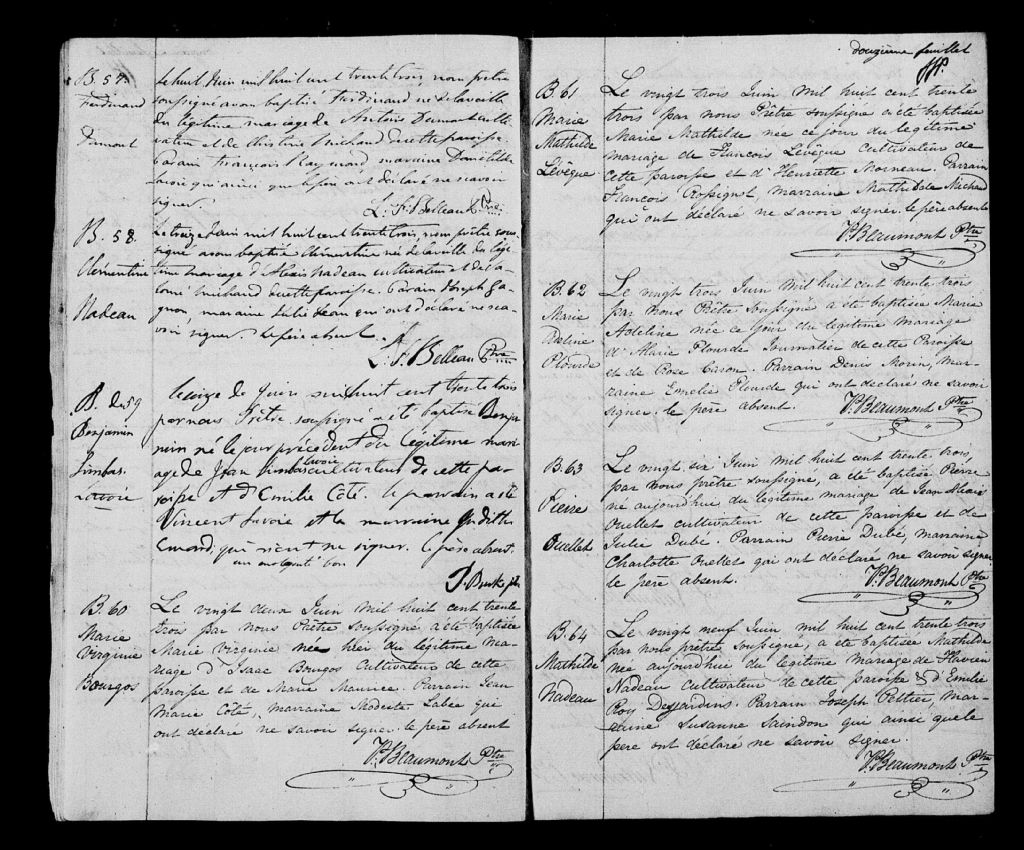 B. 57.
Ferdinand
Dumont
Le huit Juin mil huit cent trente trois, nous prêtre
soussigné avons baptisé Ferdinand né de la veille
du légitime mariage de Dumont
et de Christine Michaud de cette paroisse.
Parain François Raymond maraine
qui ainsi que le père ont déclaré ne scavoir
signer.
L. F. Belleau Ptre
B. 58.
Clementine
Nadeau
Le treize Juin mil huit cent trente trois, nous prêtre sous-
signé avons baptisé Clémentine née de la veille du légi-
time mariage d'Alexis Nadeau cultivateur et de
Michaud de cette paroisse. Parain Joseph Ga-
gnon, maraine Julie Jean qui ont déclaré ne sca-
voir signer. Le père absent.
L. F. Belleau Ptre
B. de 59
Benjamin
Lavoie
Le seize de Juin mil huit cent trente trois
par nous Prêtre soussigné a été baptisé Benja-
min né le jour précédent du légitime mari-
age de Jean Lavoie cultivateur de cette pa-
roisse et d'Emilie Côté. Le parrain a été
Vincent Lavoie et la marraine Judith
Emond, qui n'ont su signer. Le père absent.
un mot bon
B. 60
Marie
Virginie
Bourgos
Le vingt deux Juin mil huit cent trente
trois par nous Prêtre soussigné a été baptisée
Marie Virginie née hier du légitime ma-
riage d'Isaac Bourgos cultivateur de cette
paroisse et de Marie Maurice. Parrain Jean
Marie Côté, marraine Modeste Labée qui
ont déclaré ne savoir signer. le père absent
Ps. Beaumont Ptre
douzième feuillet
B. 61
Marie
Mathilde
Lévêque
Le vingt trois Juin mil huit cent trente
trois par nous Prêtre soussigné a été baptisée
Marie Mathilde née ce jour du légitime
mariage de François Lévêque cultivateur de
cette paroisse et d'Henriette Morneau. Parrain
François Rossignol, marraine Mathilde Michaud
qui ont déclaré ne savoir signer. le père absent
Ps. Beaumont Ptre
B. 62
Marie
Adeline
Plourde
Le vingt trois Juin mil huit cent trente trois
par nous Prêtre soussigné a été baptisée Marie
Adeline née ce jour du légitime mariage
d'Marie Plourde Journalier de cette Paroisse
et de Rose Caron. Parrain Denis Morin, mar-
raine Emelie Plourde qui ont déclaré ne savoir
signer. le père absent.
Ps. Beaumont Ptre
B. 63
Pierre
Ouellet
Le vingt six Juin mil huit cent trente trois,
par nous prêtre soussigné, a été baptisé Pierre
né aujourd'hui du légitime mariage de Jean Marie
Ouellet cultivateur de cette paroisse et de
Julie Dubé. Parrain Pierre Dubé, marraine
Charlotte Ouellet qui ont déclaré ne savoir signer
le père absent.
Ps. Beaumont Ptre
B. 64
Mathilde
Nadeau
Le vingt neuf Juin mil huit cent trente trois
par nous prêtre soussigné, a été baptisée Mathilde
née aujourd'hui du légitime mariage de Flavien
Nadeau cultivateur de cette paroisse & d'Emilie
Roy Desjardins. Parrain Joseph Peltier, mar-
raine Susanne Saindon qui ainsi que le
pere ont déclaré ne savoir signer.
Ps. Beaumont Ptre